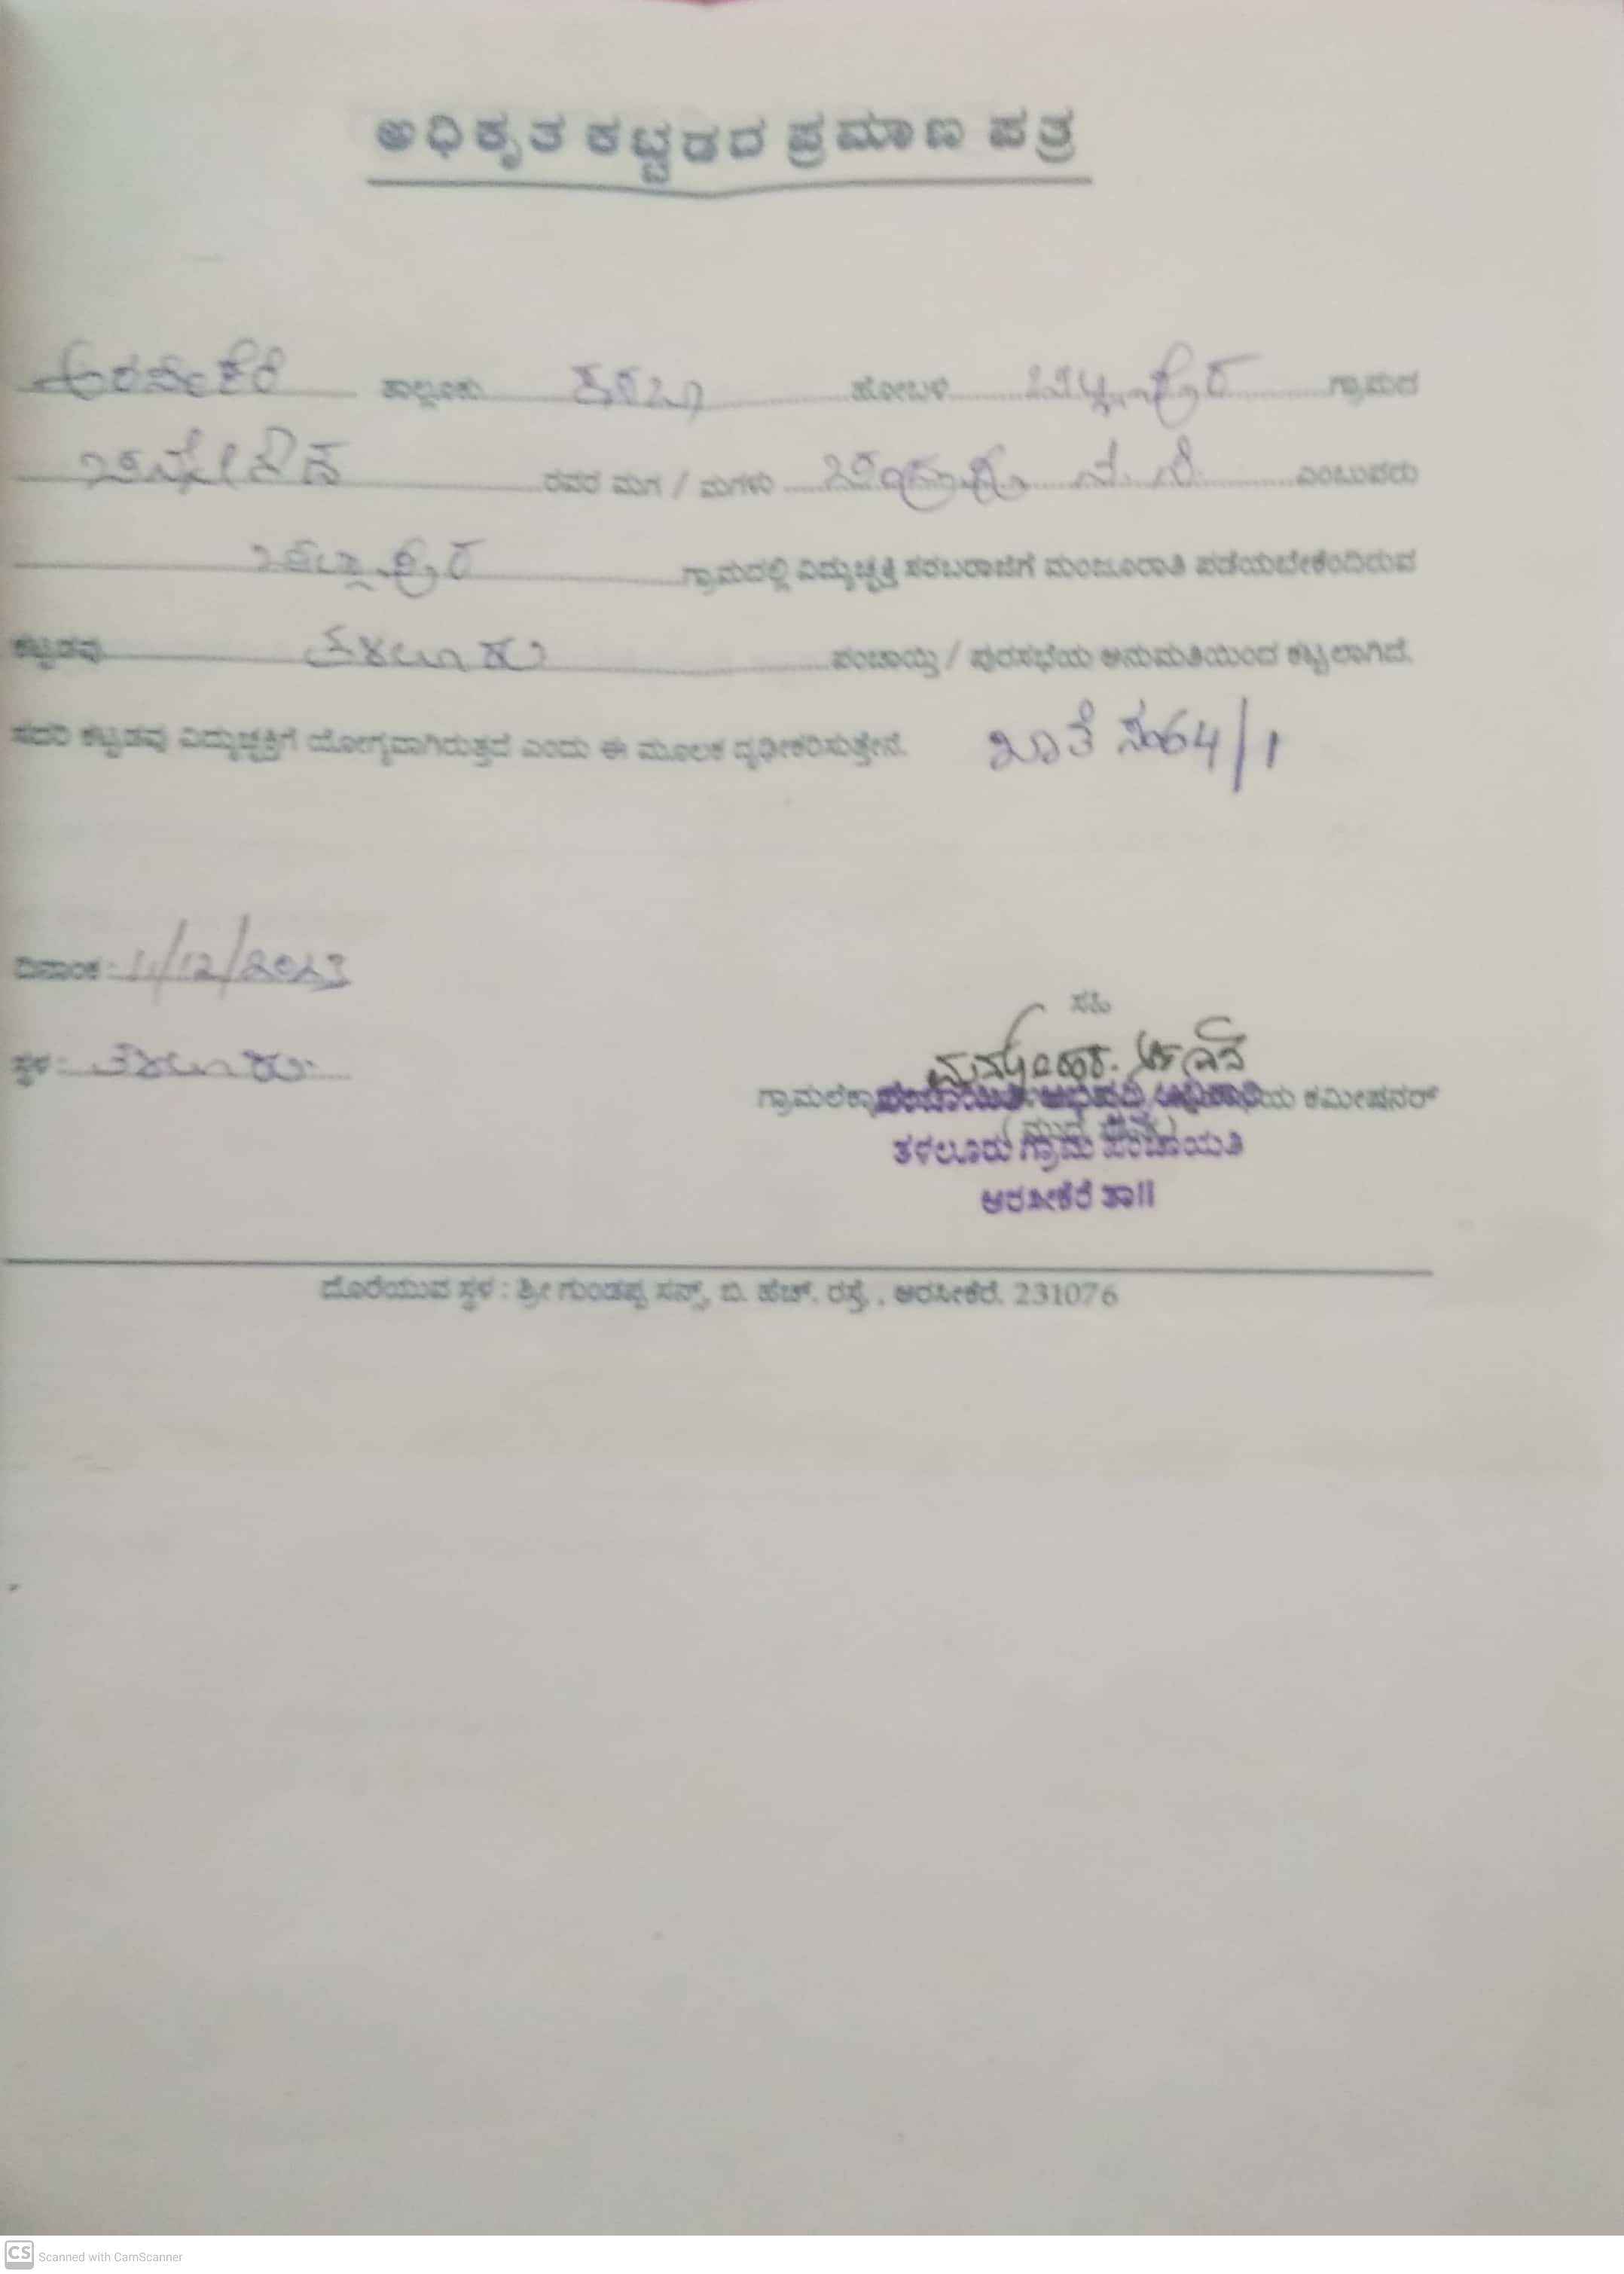 ಅಧಿಕೃತ ಕಟ್ಟಡದ ಪ್ರಮಾಣ ಪತ್ರ
ಅರಸೀಕೆರೆ ತಾಲ್ಲೂಕು ಕಸಬಾ ಹೋಬಳಿ ಗ್ರಾಮದ
ರವರ ಮಗ / ಮಗಳು ಎಂಬುವರು
ಗ್ರಾಮದಲ್ಲಿ ವಿದ್ಯುಚ್ಛಕ್ತಿ ಸರಬರಾಜಿಗೆ ಮಂಜೂರಾತಿ ಪಡೆಯಬೇಕೆಂದಿರುವ
ಕಟ್ಟಡವು ತಳಲೂರು ಪಂಚಾಯ್ತಿ / ಪುರಸಭೆಯ ಅನುಮತಿಯಿಂದ ಕಟ್ಟಲಾಗಿದೆ.
ಸದರಿ ಕಟ್ಟಡವು ವಿದ್ಯುಚ್ಛಕ್ತಿಗೆ ಯೋಗ್ಯವಾಗಿರುತ್ತದೆ ಎಂದು ಈ ಮೂಲಕ ದೃಢೀಕರಿಸುತ್ತೇನೆ. ಖಾತೆ ನಂ64/1
ದಿನಾಂಕ : 11/12/2023
ಸ್ಥಳ : ತಳಲೂರು
ಸಹಿ
ಕಮೀಷನರ್
ತಳಲೂರು ಗ್ರಾಮ ಪಂಚಾಯತಿ
ಅರಸೀಕೆರೆ ತಾ||
ದೊರೆಯುವ ಸ್ಥಳ : ಶ್ರೀ ಗುಂಡಪ್ಪ ಸನ್ಸ್, ಬಿ. ಹೆಚ್. ರಸ್ತೆ, , ಅರಸೀಕೆರೆ. 231076
CS Scanned with CamScanner